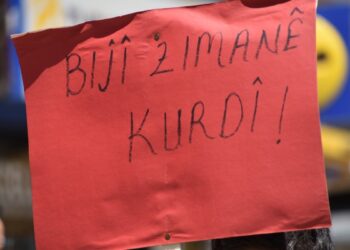 BIJÎ ZIMANÊ
KURDÎ !